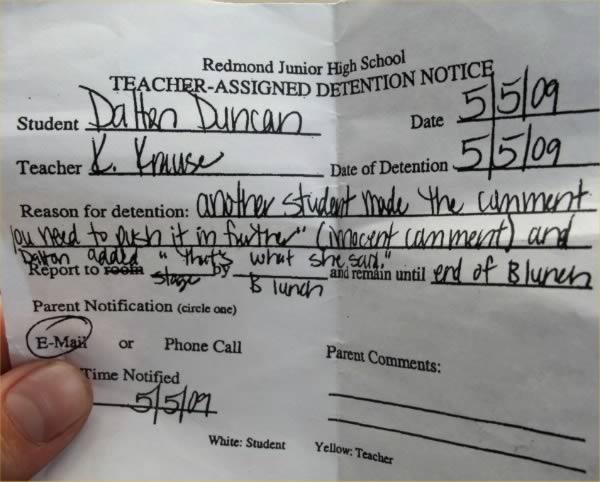 Redmond Junior High School
TEACHER-ASSIGNED DETENTION NOTICE
Student Dalton Duncan
Date 5/5/09
Teacher K. Krause
Date of Detention 5/5/09
Reason for detention: another student made the comment
"you need to push it in further" (innocent comment) and
Dalton added "that's what she said."
Report to room stage by B lunch and remain until end of B lunch
Parent Notification (circle one)
E-Mail or Phone Call
Parent Comments:
Time Notified
5/5/09
White: Student Yellow: Teacher